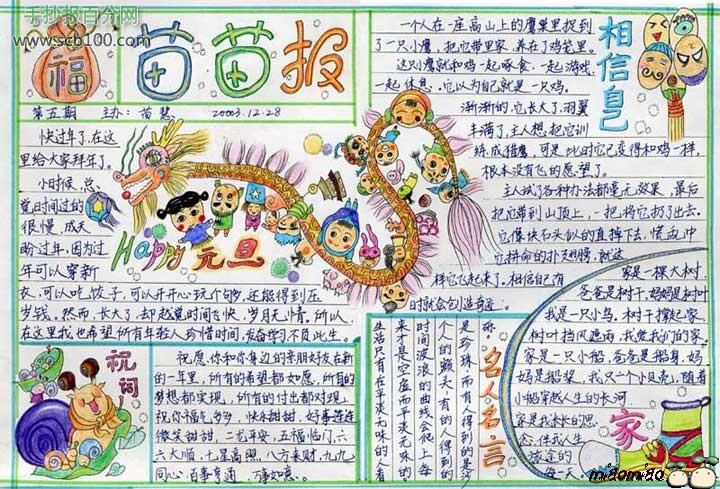 手抄报百分网
www.scb100.com
福
苗苗报
第五期 主办：苗慧 20003.12.28
快过年了，在这
里给大家拜年了。
小时候，总
觉时间过的
很慢，成天
盼过年，因为过
年可以穿新
衣，可以吃饺子，可以开开心玩个够，还能得到压
岁钱。然而，长大了，却总觉时间飞快，岁月无情，所以，
在这里我也希望所有年轻人珍惜时间，发奋学习不负此生。
Happy 元旦
相信自己
一个人在一座高山上的鹰巢里捉到
了一只小鹰，把它带里家，养在了鸡笼里。
这只鹰就和鸡一起啄食，一起游戏，
一起休息，它以为自己就是一只鸡。
渐渐的，它长大了，羽翼
丰满了，主人想把它训
练成猎鹰，可是，此时它已变得和鸡一样，
根本没有飞的愿望了。
主人试了各种办法都毫无效果，最后
把它带到山顶上，一把将它扔了出去。
它像块石头似的直掉下去，慌乱中
它拼命的扑打翅膀，就这
样它飞起来了。相信自己有
时就会创造奇迹。
祝词
祝愿你和你身边的亲朋好友在新
的一年里，所有的希望都如愿，所有的
梦想都实现，所有的付出都对现。
祝你福气多多，快乐甜甜，好事连连
微笑甜甜，一忘平安，五福临门，六
六大顺，七星高照，八方来财，九九
同心，百事亨通，万事如意。
名人名言
你。
是珍珠，而有人得到的是沙
个人的额头，有的人得到的
时间波浪的曲线会爬上每
来才是空虚而平淡无味的。
生活只有在平淡无味的人看
家
家是一棵大树，
爸爸是树干，妈妈是树枝
我是一只小鸟，树干撑起家
树叶挡风遮雨，我觉我们的家。
家是一只小船，爸爸是船身，妈
妈是船桨，我只一个小贝壳，随着
小船穿越人生的长河
家是我永长的思
念，伴我人生
旅途的
每一天。
miaomiao